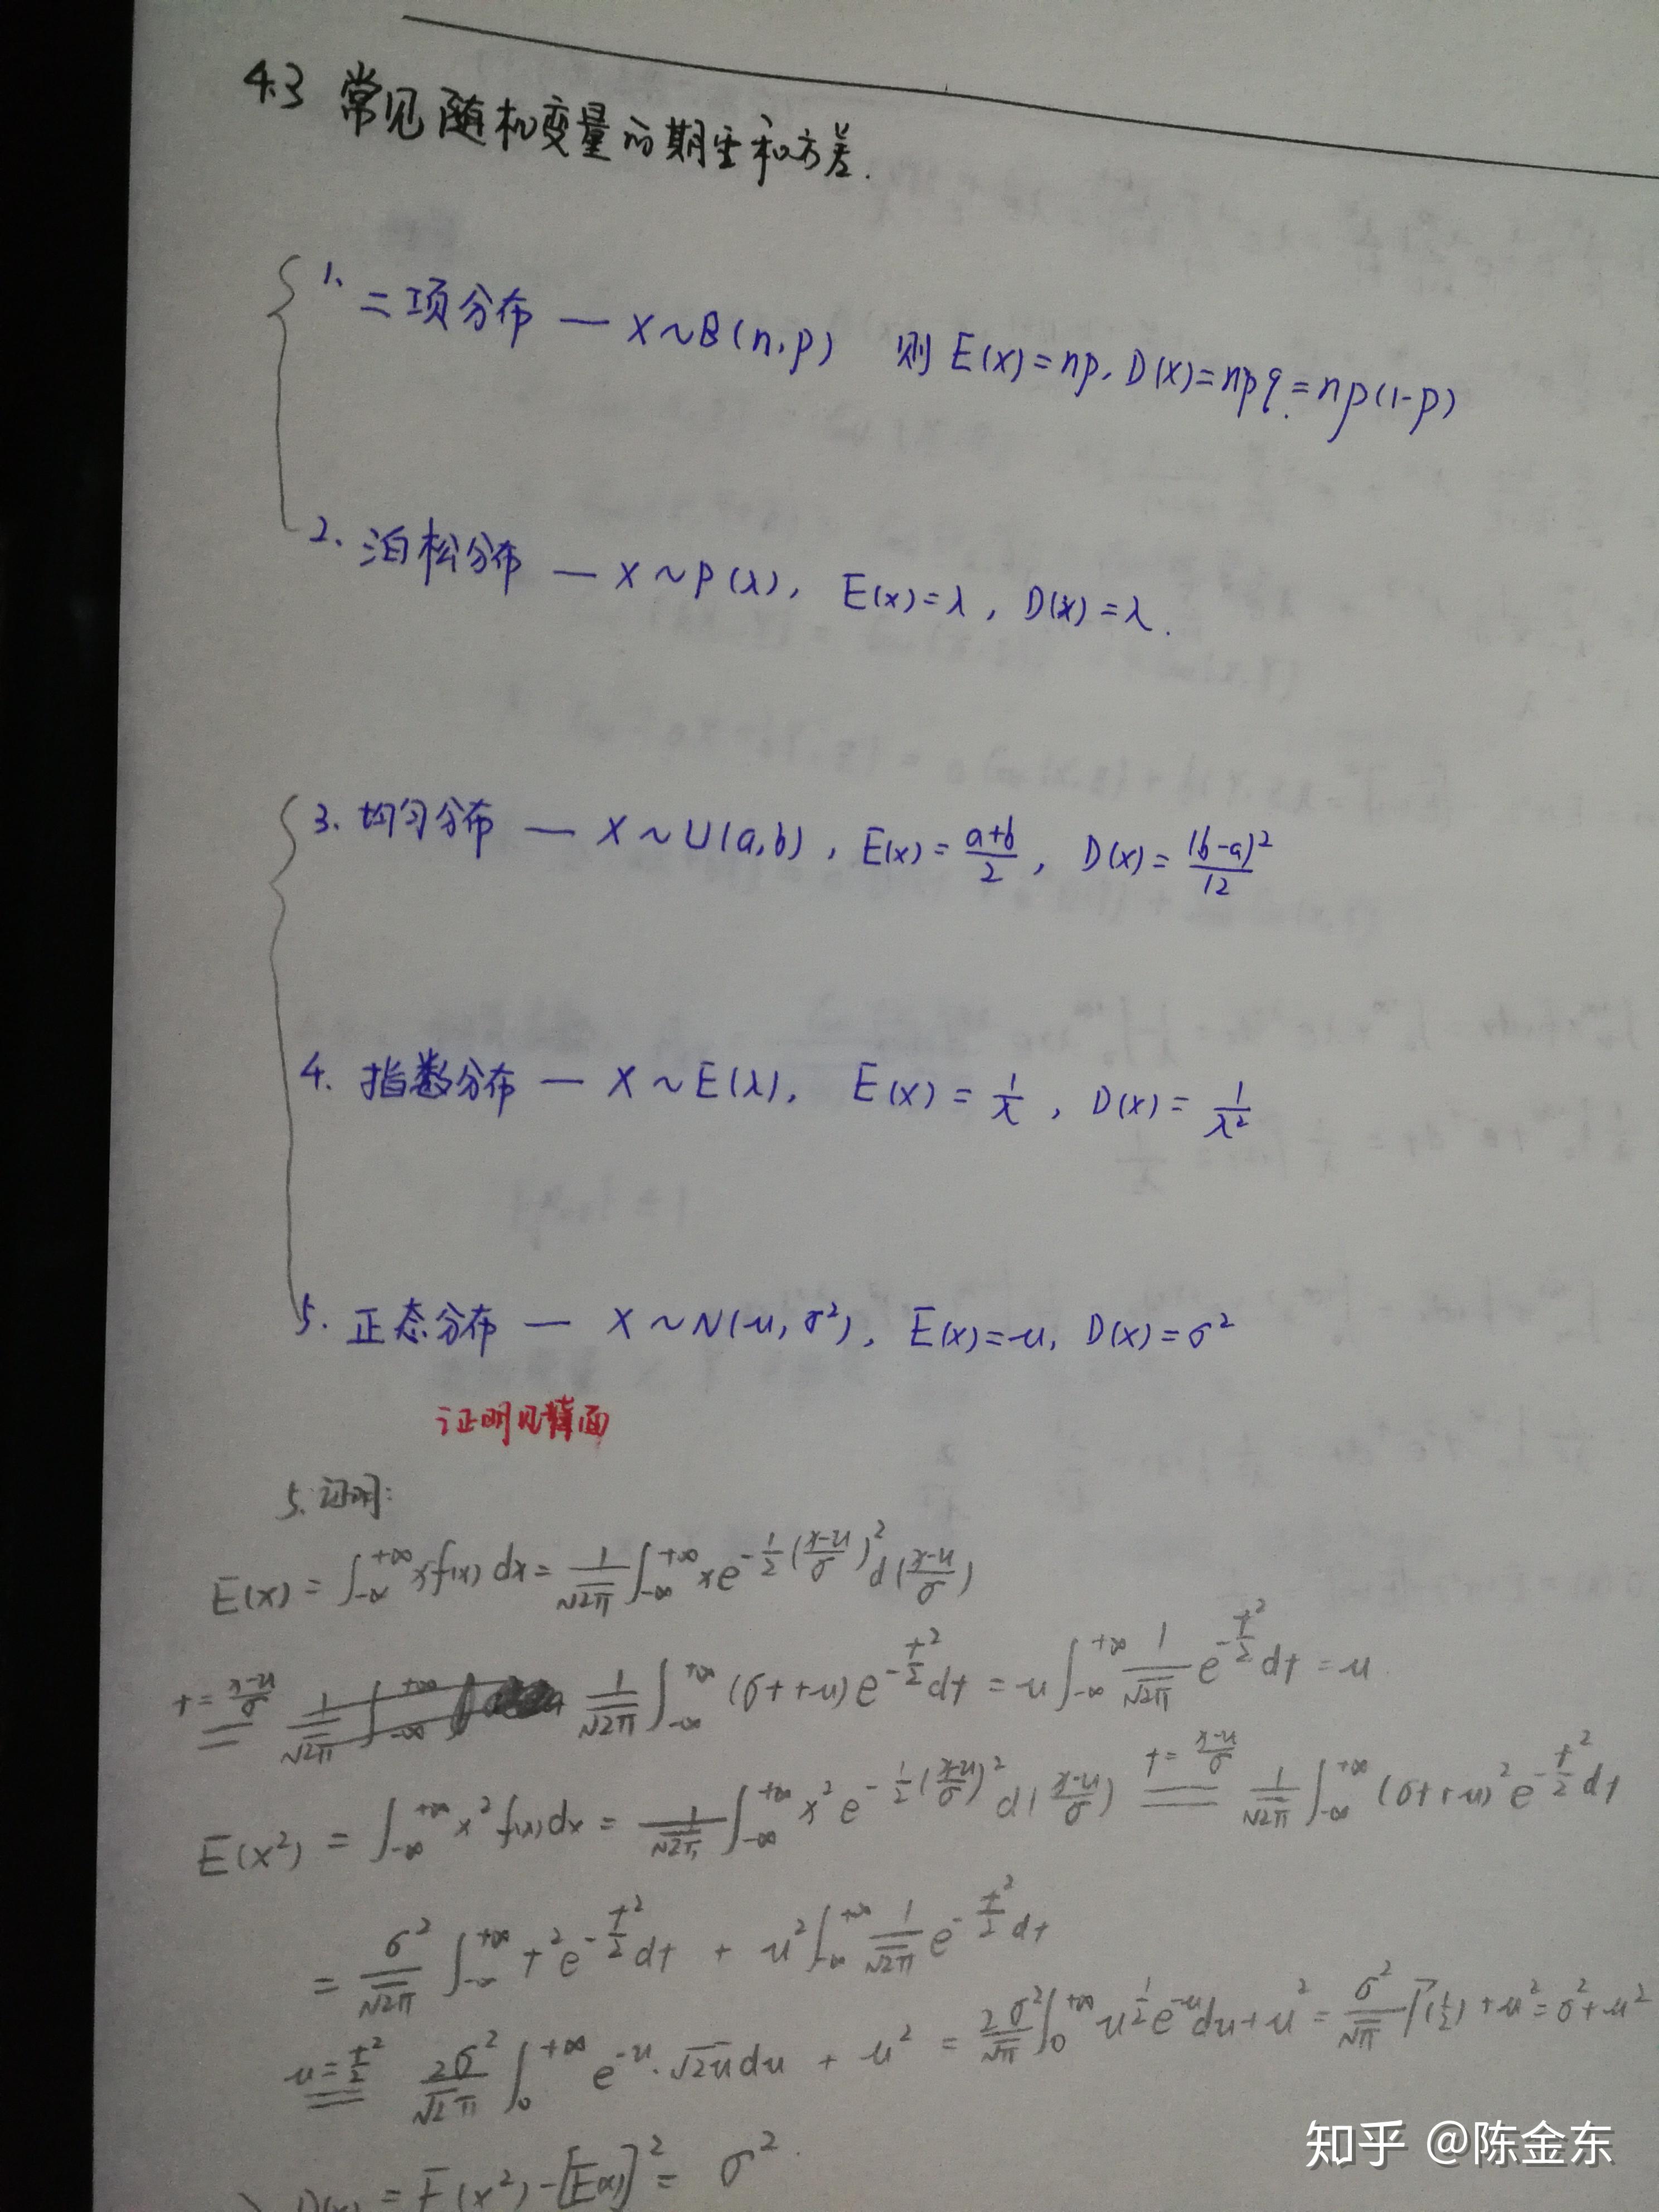 4.3 常见随机变量的期望和方差.
1. 二项分布 — X~B(n,p) 则 E(X)=np, D(X)=npq=np(1-p)
2. 泊松分布 — X~P(λ), E(X)=λ, D(X)=λ.
3. 均匀分布 — X~U(a,b), E(X)=\frac{a+b}{2}, D(X)=\frac{(b-a)^2}{12}
4. 指数分布 — X~E(λ), E(X)=\frac{1}{λ}, D(X)=\frac{1}{λ^2}
5. 正态分布 — X~N(u,σ²), E(X)=u, D(X)=σ²
证明见背面
5. 证明:
E(X) = ∫_{-∞}^{+∞} xf(x)dx = \frac{1}{√2π} ∫_{-∞}^{+∞} x e^{-\frac{1}{2}(\frac{x-u}{σ})^2} d(\frac{x-u}{σ})
\overset{t=\frac{x-u}{σ}}{=} \frac{1}{√2π} ∫_{-∞}^{+∞} (σt+u) e^{-\frac{t^2}{2}} dt = u ∫_{-∞}^{+∞} \frac{1}{√2π} e^{-\frac{t^2}{2}} dt = u
E(X²) = ∫_{-∞}^{+∞} x² f(x)dx = \frac{1}{√2π} ∫_{-∞}^{+∞} x² e^{-\frac{1}{2}(\frac{x-u}{σ})^2} d(\frac{x-u}{σ}) \overset{t=\frac{x-u}{σ}}{=} \frac{1}{√2π} ∫_{-∞}^{+∞} (σt+u)² e^{-\frac{t^2}{2}} dt
= \frac{σ²}{√2π} ∫_{-∞}^{+∞} t² e^{-\frac{t^2}{2}} dt + u² ∫_{-∞}^{+∞} \frac{1}{√2π} e^{-\frac{t^2}{2}} dt
\overset{u=\frac{t^2}{2}}{=} \frac{2σ²}{√2π} ∫_{0}^{+∞} e^{-u}·√2u du + u² = \frac{2σ²}{√π} ∫_{0}^{+∞} u^{\frac{1}{2}} e^{-u} du + u² = \frac{σ²}{√π} Γ(\frac{1}{2}) + u² = σ²+u²
D(X) = E(X²)-[E(X)]² = σ².
知乎 @陈金东